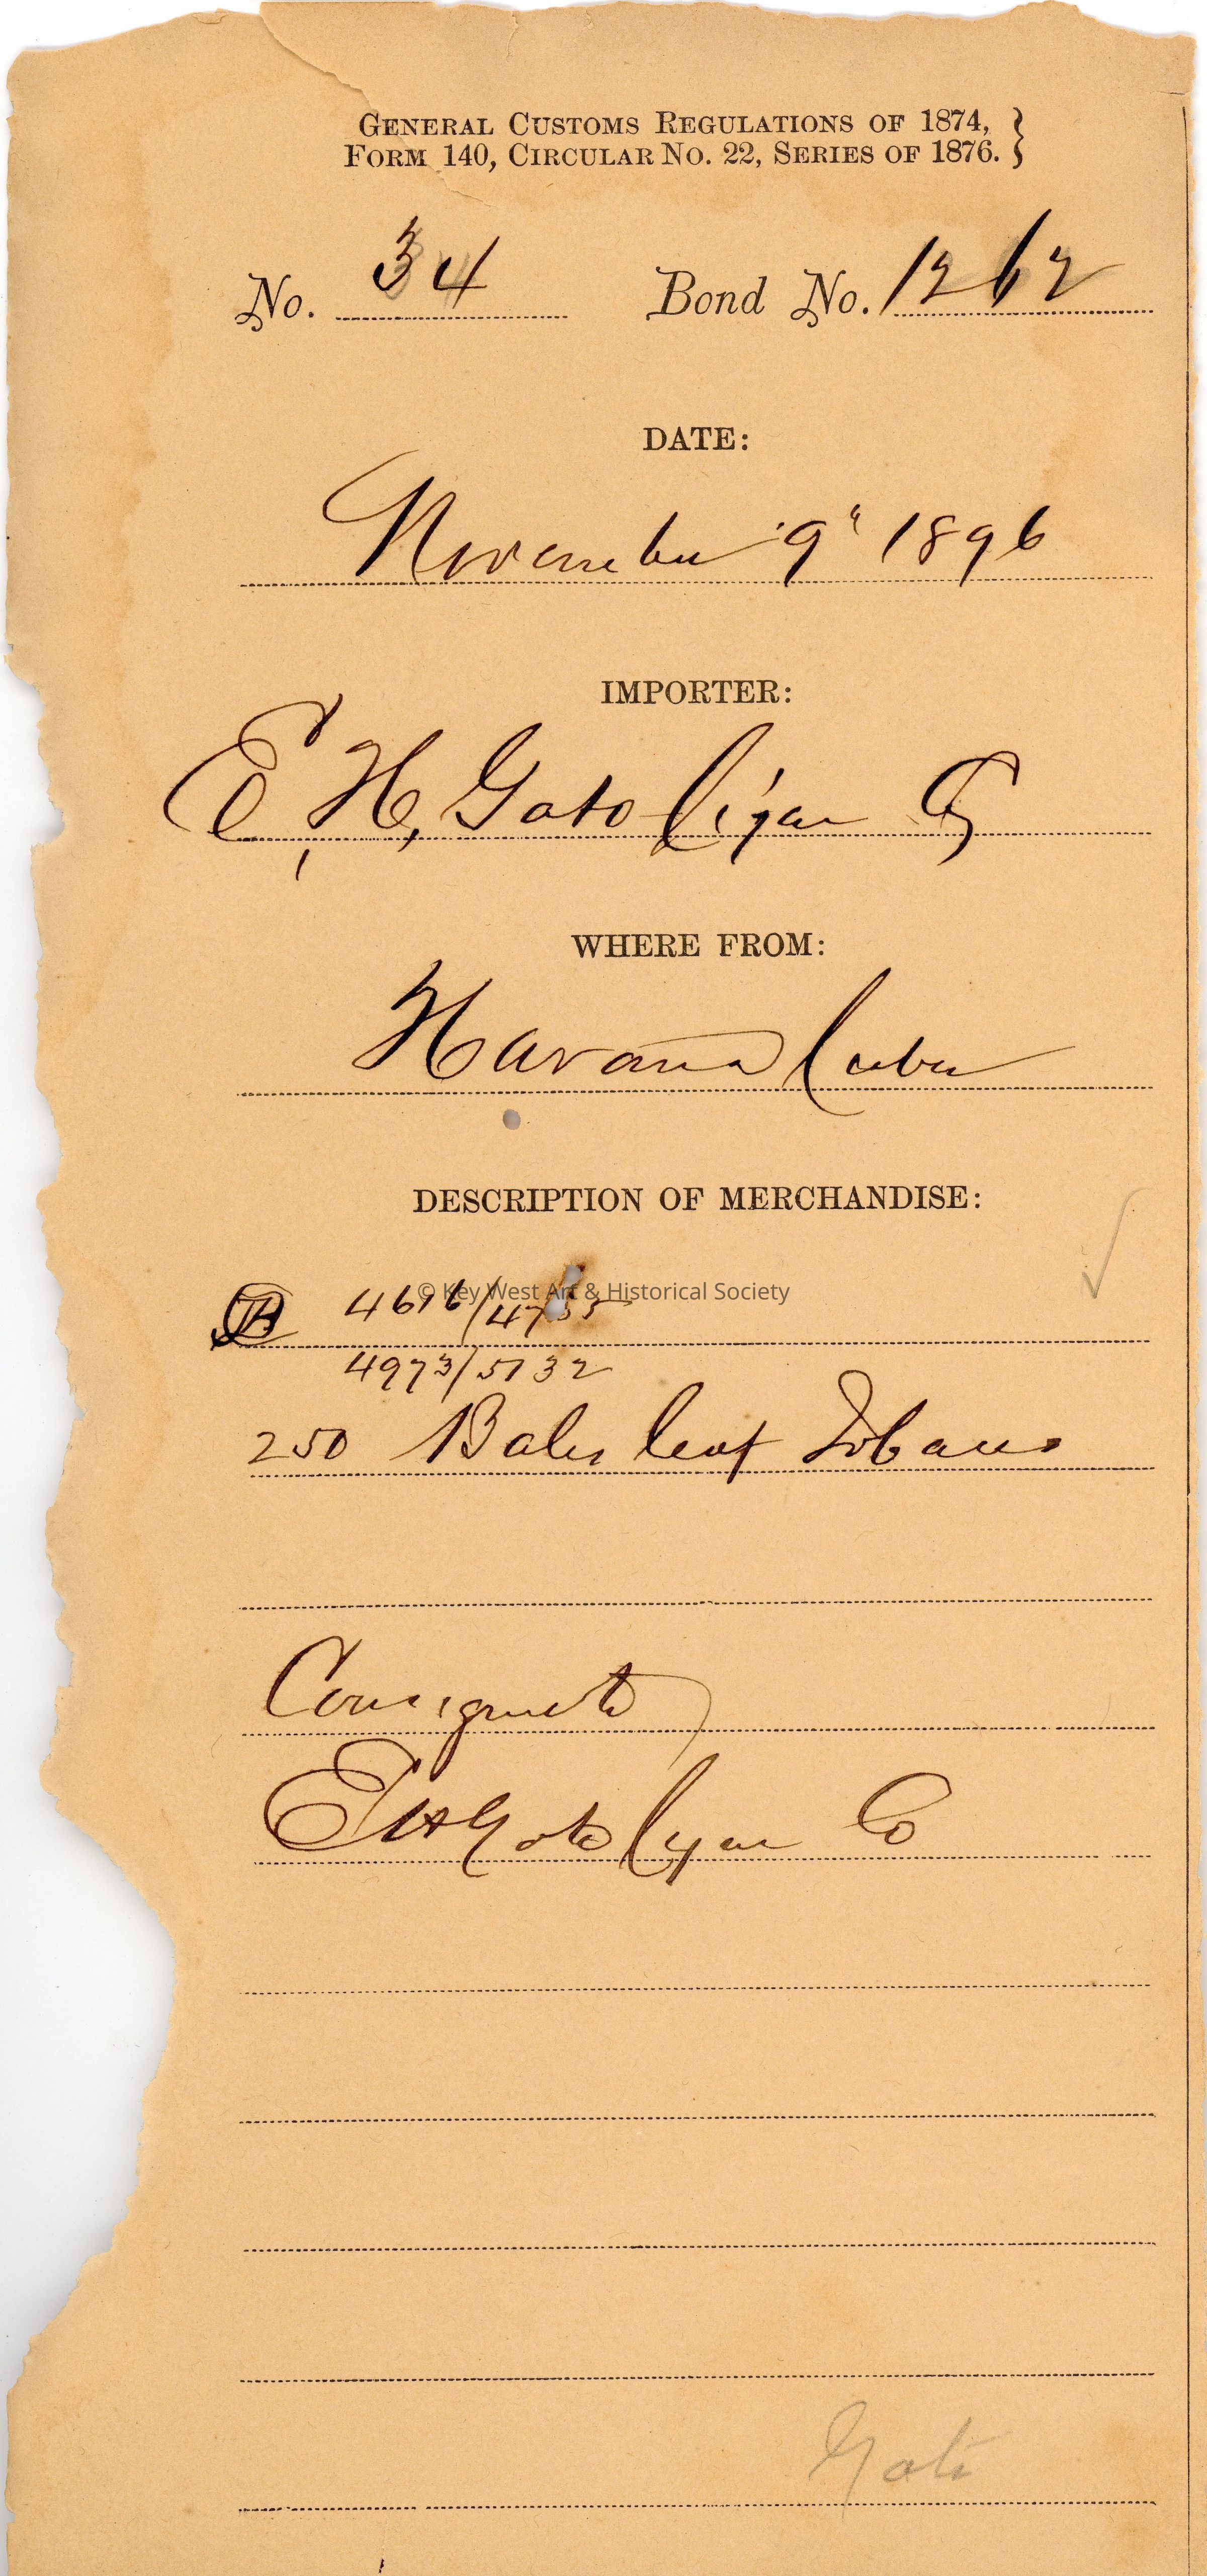 GENERAL CUSTOMS REGULATIONS OF 1874,
FORM 140, CIRCULAR NO. 22, SERIES OF 1876. }
No. 34 Bond No. 1262
DATE:
November 9" 1896
IMPORTER:
E, H, Gato Cigar Cy
WHERE FROM:
Havana Cuba
DESCRIPTION OF MERCHANDISE:
© Key West Art & Historical Society
4616/4755
4973/5132
250 Bales leaf Tobacco
Consigned to
E H Gato Cigar Co
Gato